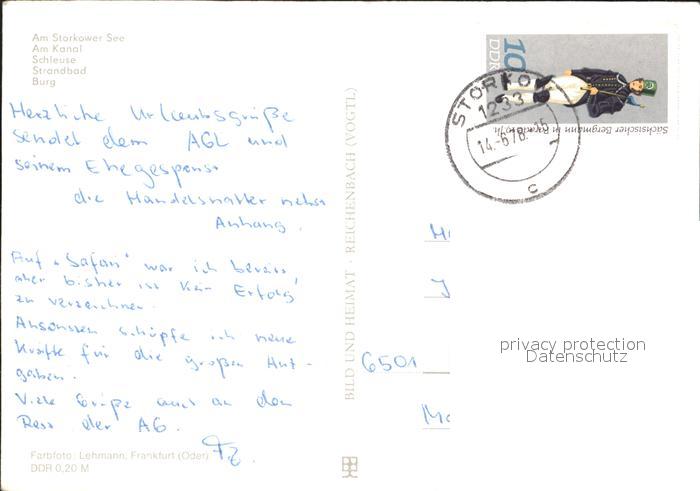 Am Storkower See
Am Kanal
Schleuse
Strandbad
Burg
Herzliche Urlaubsgrüße
sendet dem AGL und
seinem Ehegespons
die Handelsnatter nebst
Anhang.
Auf "Safari" war ich bereits
aber bisher ist kein Erfolg
zu verzeichnen.
Ansonsten schöpfe ich neue
Kräfte für die großen Auf-
gaben.
Viele Grüße auch an den
Rest der AG.
Farbfoto: Lehmann, Frankfurt (Oder)
DDR 0,20 M
BILD UND HEIMAT · REICHENBACH (VOGTL)
10
DDR
Sächsischer Bergmann in Parade
STORKOW
1233
14.-6.78.-15
c
6501
privacy protection
Datenschutz